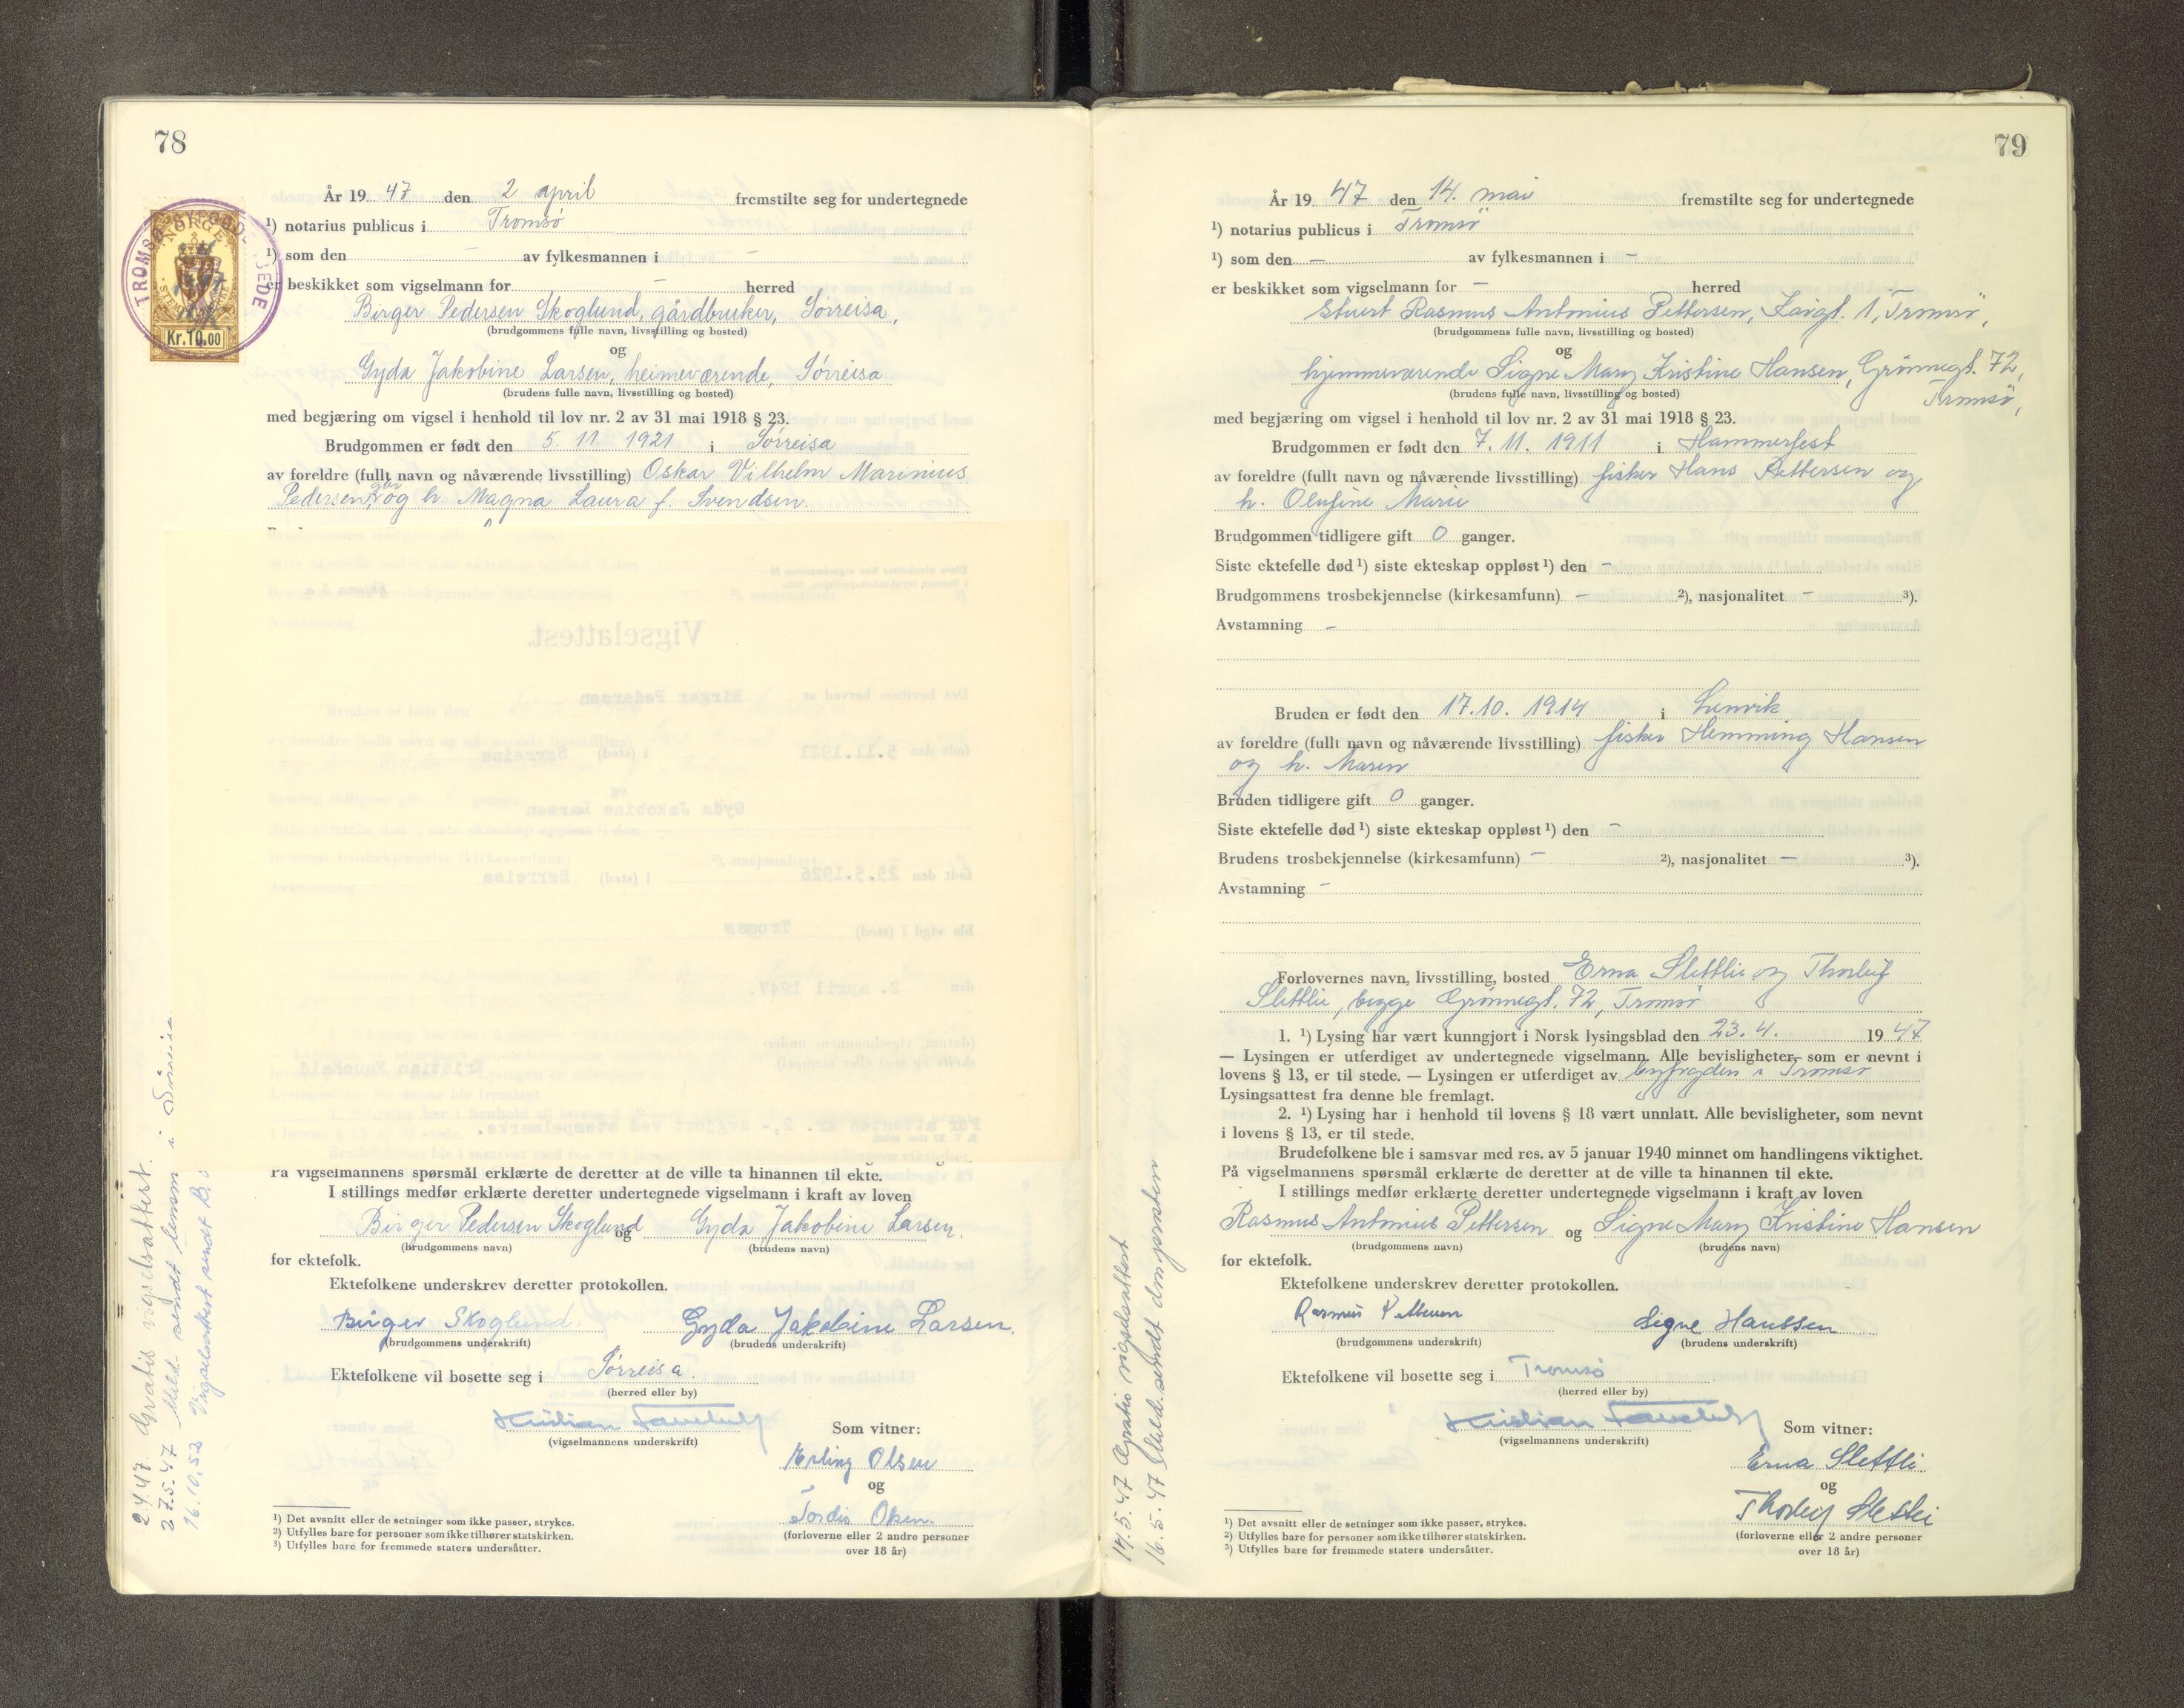 78
År 19 47 den 2 april fremstilte seg for undertegnede
¹) notarius publicus i Tromsø
¹) som den – av fylkesmannen i –
er beskikket som vigselmann for – herred
Birger Pedersen Skoglund, gårdbruker, Sørreisa,
(brudgommens fulle navn, livsstilling og bosted)
og
Gyda Jakobine Larsen, heimeværende, Sørreisa
(brudens fulle navn, livsstilling og bosted)
med begjæring om vigsel i henhold til lov nr. 2 av 31 mai 1918 § 23.
Brudgommen er født den 5. 11. 1921 i Sørreisa
av foreldre (fullt navn og nåværende livsstilling) Oskar Vilhelm Marinius
Pedersen, gbr og h Magna Laura f. Svendsen.
TROMSØ
NORGE
Kr. 10.00
Vigselattest
Det bevitnes herved at Birger Pedersen
født den 5.11.1921 i (sted) Sørreisa
og
Gyda Jakobine Larsen
født den 25.5.1926 i (sted) Sørreisa
ble vigd i (sted) Tromsø
den 2. april 1947.
På vigselmannens spørsmål erklærte de deretter at de ville ta hinannen til ekte.
I stillings medfør erklærte deretter undertegnede vigselmann i kraft av loven
Birger Pedersen Skoglund og Gyda Jakobine Larsen.
(brudgommens navn) (brudens navn)
for ektefolk.
Ektefolkene underskrev deretter protokollen.
Birger Skoglund. Gyda Jakobine Larsen.
(brudgommens underskrift) (brudens underskrift)
Ektefolkene vil bosette seg i Sørreisa.
(herred eller by)
Kristian
(vigselmannens underskrift)
Som vitner:
Erling Olsen
og
Tordis Olsen.
(forloverne eller 2 andre personer
over 18 år)
¹) Det avsnitt eller de setninger som ikke passer, strykes.
²) Utfylles bare for personer som ikke tilhører statskirken.
³) Utfylles bare for fremmede staters undersåtter.
2.4.47. Gratis vigselsattest.
27.5.47 Meld. sendt lensm i Sørreisa
16.10.52 Vigselsattest sendt B.
79
År 19 47 den 14. mai fremstilte seg for undertegnede
¹) notarius publicus i Tromsø
¹) som den – av fylkesmannen i –
er beskikket som vigselmann for – herred
Stuert Rasmus Antonius Pettersen, Kaigt. 1, Tromsø,
(brudgommens fulle navn, livsstilling og bosted)
og
hjemmeværende Signe Mary Kristine Hansen, Grønnegt. 72,
Tromsø,
(brudens fulle navn, livsstilling og bosted)
med begjæring om vigsel i henhold til lov nr. 2 av 31 mai 1918 § 23.
Brudgommen er født den 7. 11. 1911 i Hammerfest
av foreldre (fullt navn og nåværende livsstilling) fisker Hans Pettersen og
h. Olufine Marie
Brudgommen tidligere gift 0 ganger.
Siste ektefelle død ¹) siste ekteskap oppløst ¹) den –
Brudgommens trosbekjennelse (kirkesamfunn) – ²), nasjonalitet – ³).
Avstamning –
Bruden er født den 17.10. 1914 i Lenvik
av foreldre (fullt navn og nåværende livsstilling) fisker Hemming Hansen
og h. Maren
Bruden tidligere gift 0 ganger.
Siste ektefelle død ¹) siste ekteskap oppløst ¹) den –
Brudens trosbekjennelse (kirkesamfunn) – ²), nasjonalitet – ³).
Avstamning –
Forlovernes navn, livsstilling, bosted Erna Slettlie og Thorleif
Slettlie, begge Grønnegt. 72, Tromsø
1. ¹) Lysing har vært kunngjort i Norsk lysingsblad den 23. 4. 19 47
— Lysingen er utferdiget av undertegnede vigselmann. Alle bevisligheter, som er nevnt i
lovens § 13, er til stede. — Lysingen er utferdiget av byfogden i Tromsø
Lysingsattest fra denne ble fremlagt.
2. ¹) Lysing har i henhold til lovens § 18 vært unnlatt. Alle bevisligheter, som nevnt
i lovens § 13, er til stede.
Brudefolkene ble i samsvar med res. av 5 januar 1940 minnet om handlingens viktighet.
På vigselmannens spørsmål erklærte de deretter at de ville ta hinannen til ekte.
I stillings medfør erklærte deretter undertegnede vigselmann i kraft av loven
Rasmus Antonius Pettersen og Signe Mary Kristine Hansen
(brudgommens navn) (brudens navn)
for ektefolk.
Ektefolkene underskrev deretter protokollen.
Rasmus Pettersen Signe Hanssen
(brudgommens underskrift) (brudens underskrift)
Ektefolkene vil bosette seg i Tromsø
(herred eller by)
Kristian
(vigselmannens underskrift)
Som vitner:
Erna Slettli
og
Thorleif Slettli
(forloverne eller 2 andre personer
over 18 år)
¹) Det avsnitt eller de setninger som ikke passer, strykes.
²) Utfylles bare for personer som ikke tilhører statskirken.
³) Utfylles bare for fremmede staters undersåtter.
14.5.47 Gratis vigselsattest
16.5.47 Meld. sendt domprosten